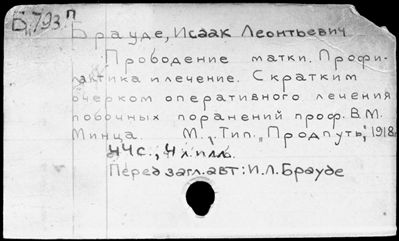 Б.793 П
Брауде, Исаак Леонтьевич.
Прободение матки. Профи-
лактика и лечение. С кратким
очерком оперативного лечения
побочных поранений проф. В.М.
Минца. М., Тип. „Продпуть", 1918.
4 л. илл.
Перед загл. авт: И.Л. Брауде